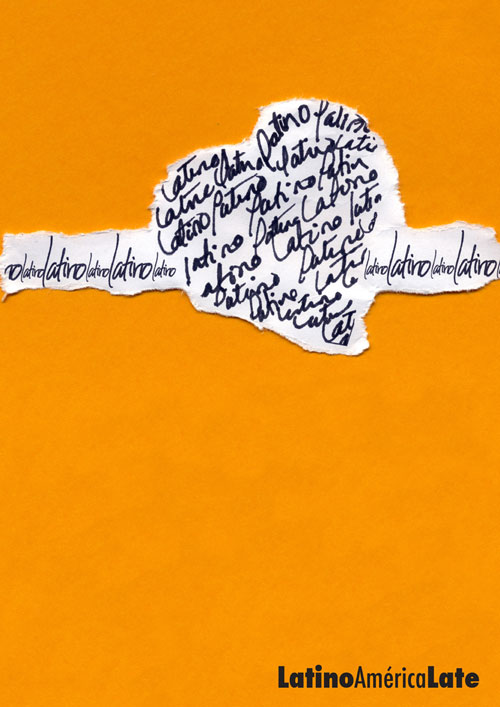 Latino Latino Latino
Latino Latino Lati
Latino Latino Latino Latin
Latino Latino Latino Latino
Latino Latino
Latino
Latino Latino
Lati
no latino latino latino latino latino
latino latino latino latino
LatinoAméricaLate